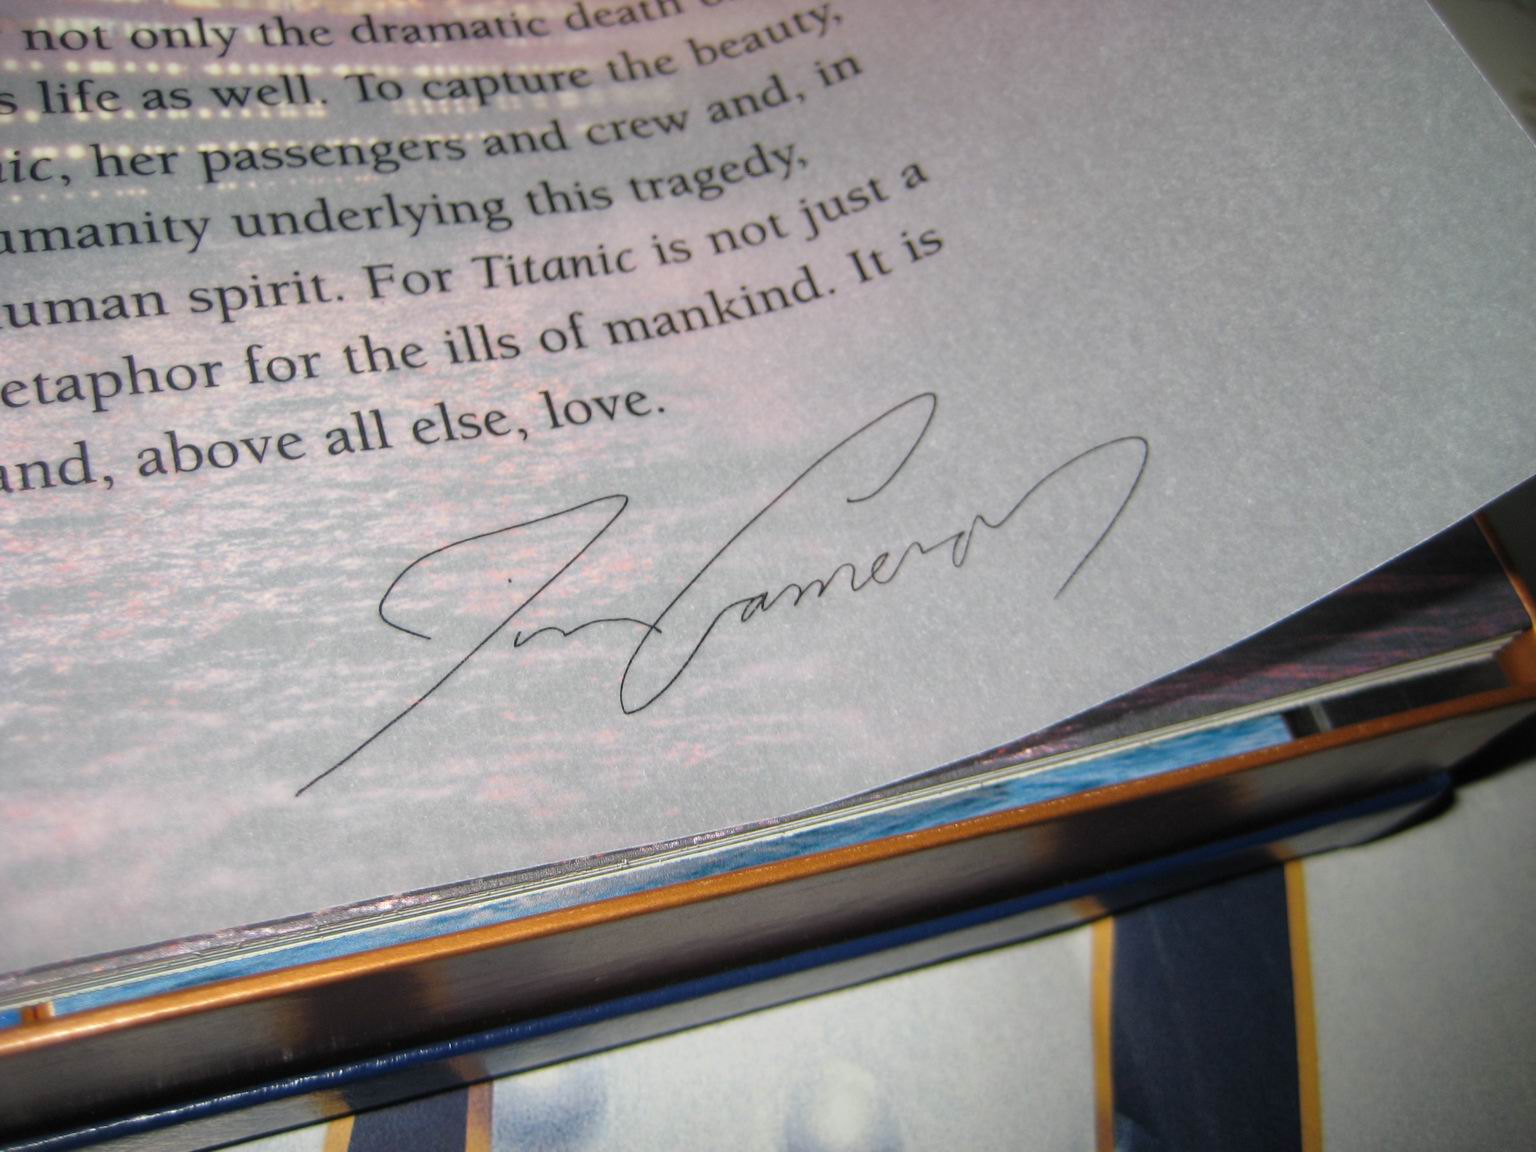 not only the dramatic death
s life as well. To capture the beauty,
nic, her passengers and crew and, in
umanity underlying this tragedy,
uman spirit. For Titanic is not just a
etaphor for the ills of mankind. It is
and, above all else, love.
Jim Cameron